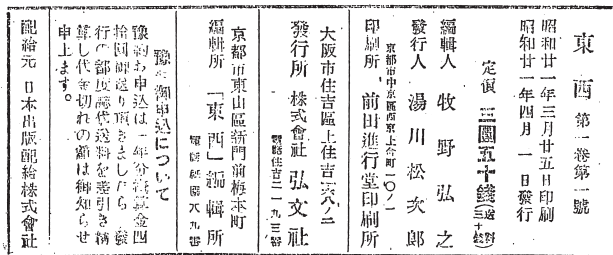 東西 第一卷第一號
昭和廿一年三月廿五日印刷
昭和廿一年四月一日發行
定價 三圓五十錢(送料三十錢)
編輯人 牧野弘之
發行人 湯川松次郎
京都市中京區西京上合町一〇ノ一
印刷所 前田進行堂印刷所
大阪市住吉區上住吉一八ノ二
發行所 株式會社 弘文社
電話住吉二一九三番
京都市東山區新門前梅本町
編輯所 「東西」編輯所
電話祇園八九番
豫約御申込について
豫約お申込は一年分概算金四
拾圓御送り頂きましたら 發
行の都度誌代送料を差引き精
算し代金切れの節は御知らせ
申上ます。
配給元 日本出版配給株式會社